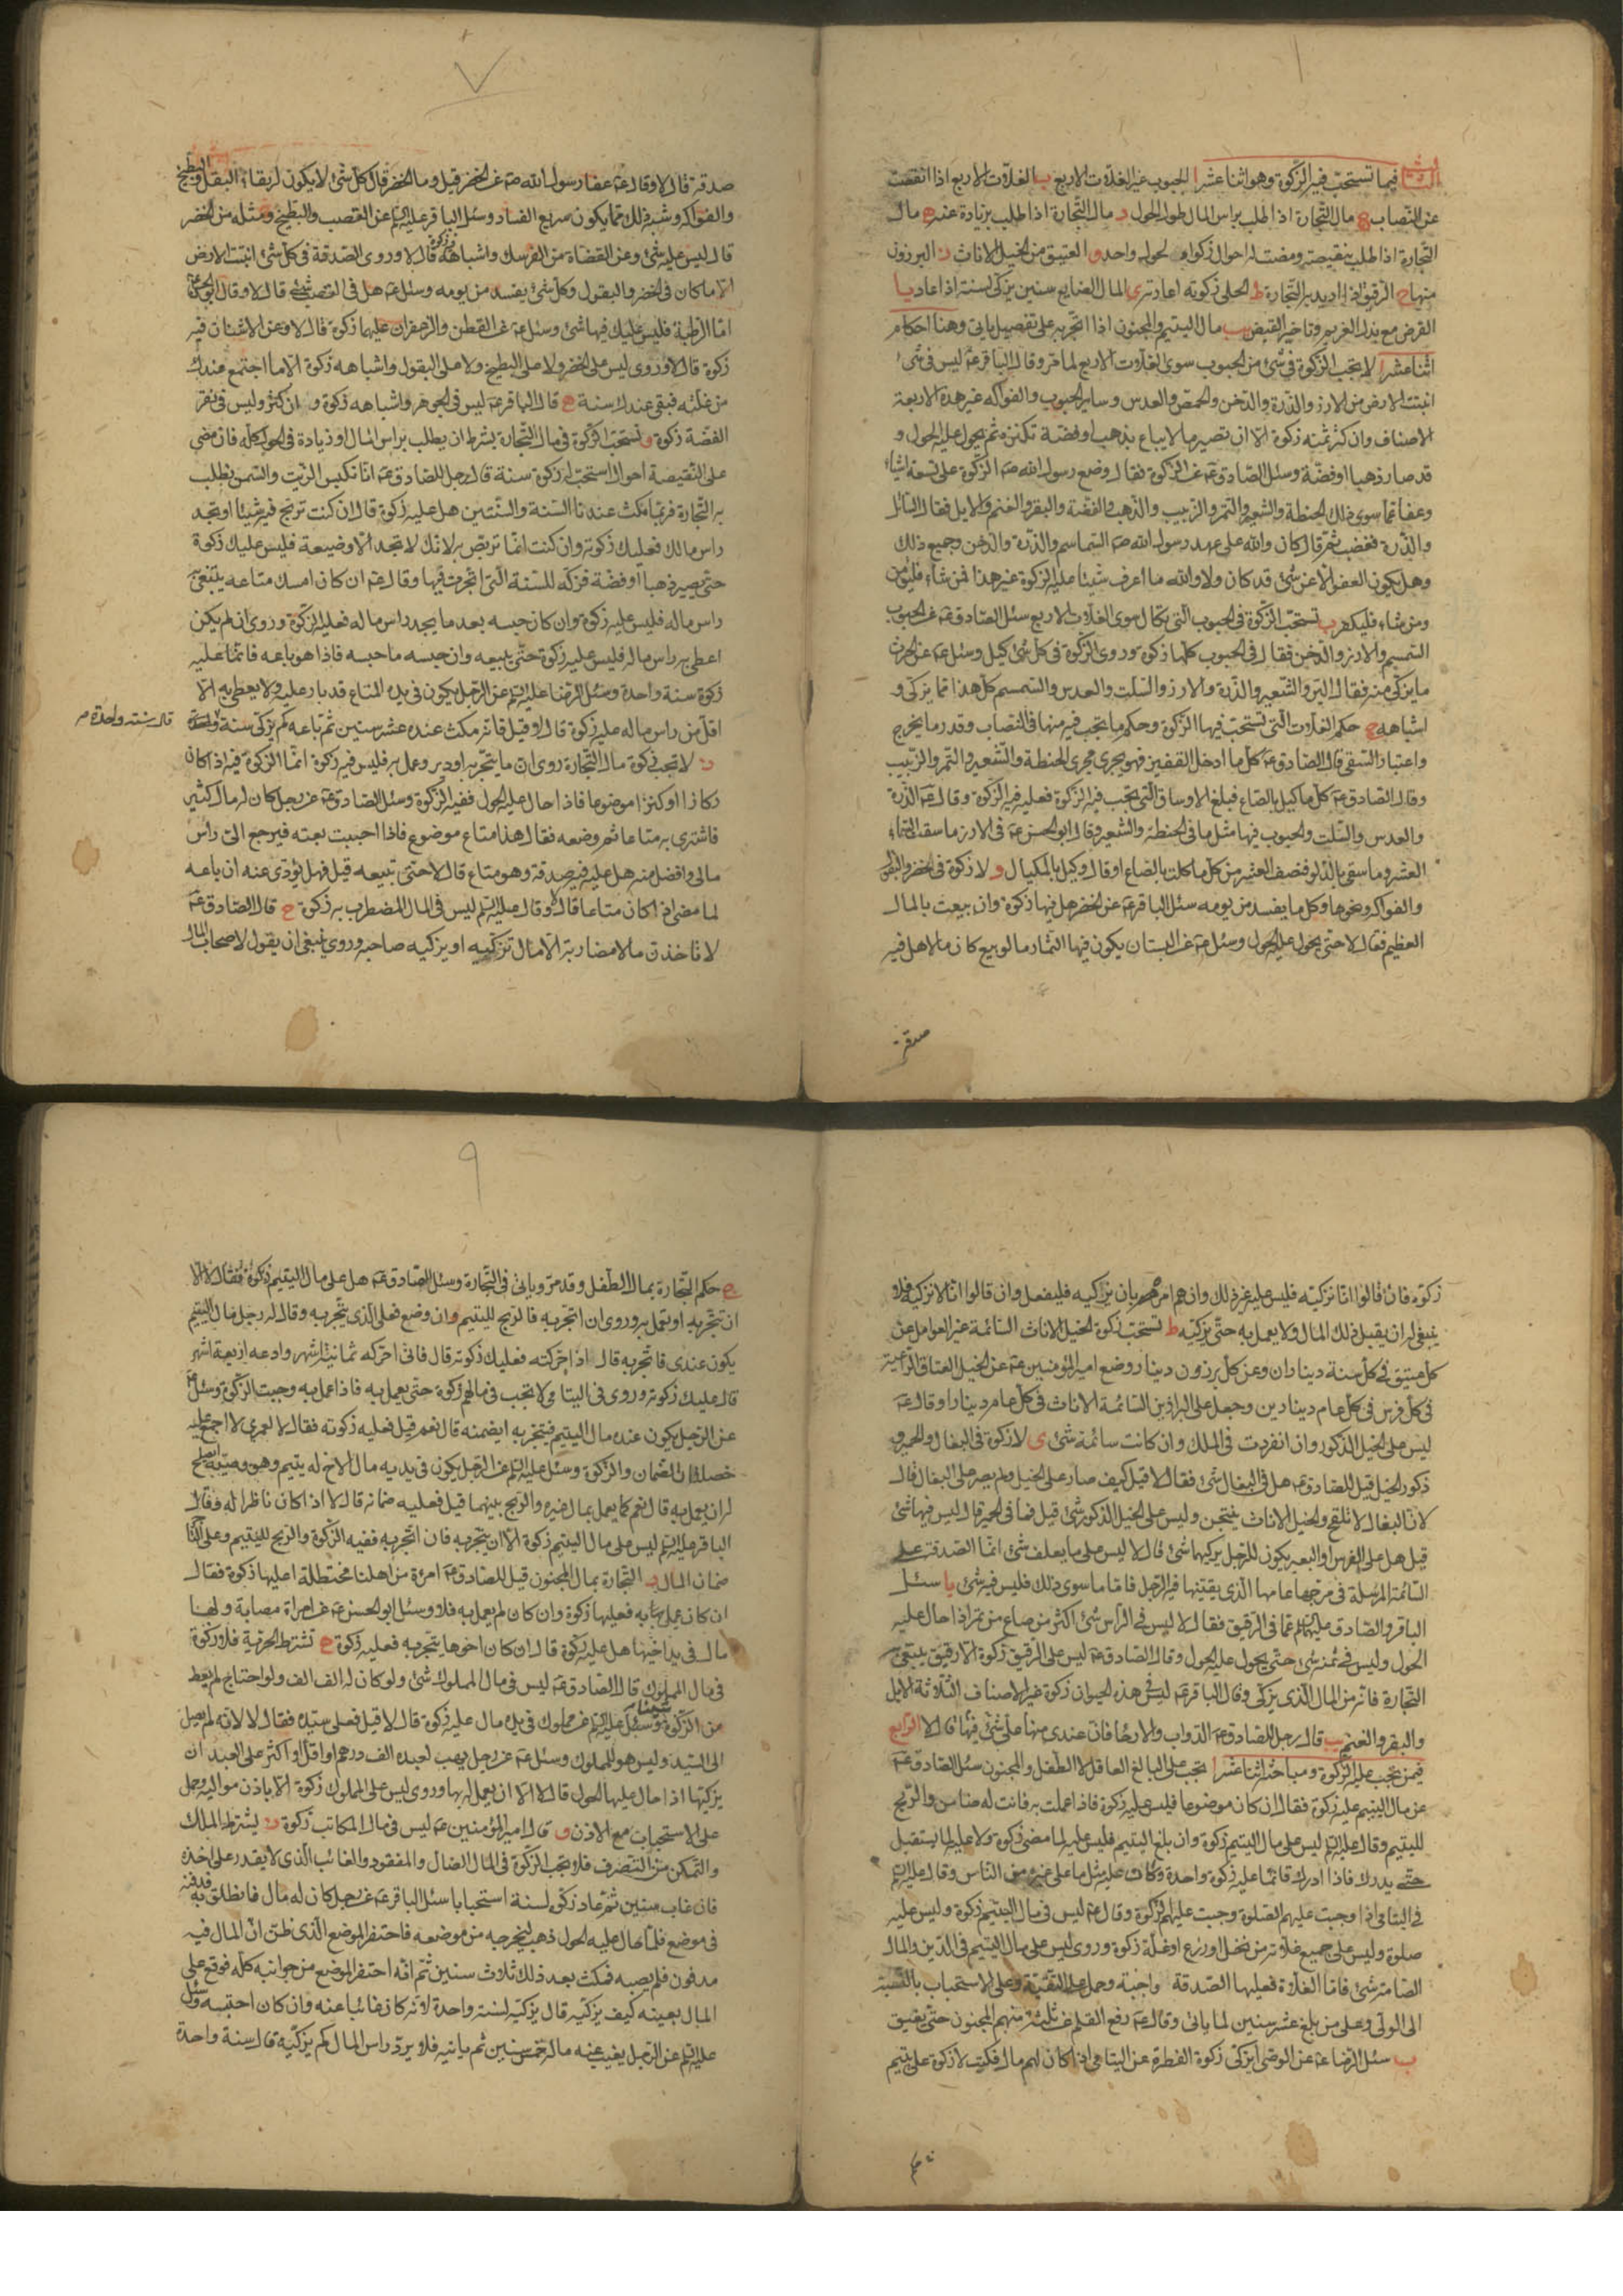 الثالث فيما تستحب فيه الزكوة وهو اثنا عشر ا الحبوب غير الغلات الاربع ب الغلات الاربع اذا انقصت
عن النصاب ج مال التجارة اذا طلب براس المال طول الحول د مال التجارة اذا طلب بزيادة عنه ه مال
التجارة اذا طلب بنقيصة ومضت له احوال زكوة لحول واحد و العتيق من الخيل الاناث ز البرزون
منها ح الرقيق اذا اريد به التجارة ط الحلي زكوته اعارته ي المال الضايع سنين يزكى لسنة اذا عاد يا
القرض مع بذل الغريم وتاخير القبض يب مال اليتيم والمجنون اذا اتجر به على تفصيل ياتى وهنا احكام
اثنا عشر ا لا تجب الزكوة فى شئ من الحبوب سوى الغلات الاربع لما مر وقال الباقر ع ليس فى شئ
انبتت الارض من الارز والذرة والدخن والحمص والعدس وساير الحبوب والفواكه غير هذه الاربعة
الاصناف وان كثر ثمنه زكوة الا ان تصير مالا يباع بذهب او فضة تكنزه ثم يحول عليه الحول و
قد صار ذهبا او فضة وسئل الصادق ع عن الزكوة فقال وضع رسول الله ص الزكوة على تسعة اشياء
وعفا عما سوى ذلك الحنطة والشعير والتمر والزبيب والذهب والفضة والبقر والغنم والابل فقال السائل
والذرة فغضب ثم قال كان والله على عهد رسول الله ص السماسم والذرة والدخن وجميع ذلك
وهل يكون العفو الا عن شئ قد كان ولا والله ما اعرف شيئا عليه الزكوة غير هذا فمن شاء فليؤمن
ومن شاء فليكفر ب تستحب الزكوة فى الحبوب التى تكال سوى الغلات الاربع سئل الصادق ع عن الحبوب
السمسم والارز والدخن فقال فى الحبوب كلها زكوة وروى الزكوة فى كل شئ كيل وسئل ع عن الحرث
ما يزكى منه فقال البر والشعير والذرة والارز والسلت والعدس والسمسم كل هذا مما يزكى و
اشباهه ج حكم الغلات التى تستحب فيها الزكوة وحكم ما تجب فيه منها فى النصاب وقدر ما يخرج
واعتبار السقى قال الصادق ع كل ما ادخل القفيز فهو يجرى مجرى الحنطة والشعير والتمر والزبيب
وقال الصادق ع كل ما كيل بالصاع فبلغ الاوساق التى تجب فيه الزكوة فعليه فيه الزكوة وقال ع الذرة
والعدس والسلت والحبوب فيها مثل ما فى الحنطة والشعير وقال ابو الحسن ع فى الارز ما سقت السماء
العشر وما سقى بالدلو فنصف العشر من كل ما كلت بالصاع او قال وكيل بالمكيال و لا زكوة فى الخضر والبقول
والفواكه ونحوها وكل ما يفسد من يومه سئل الباقر ع عن الخضر هل فيها زكوة وان بيعت بالمال
العظيم فقال لا حتى يحول عليه الحول وسئل ع عن البستان يكون فيها الثمار ما لو بيع كان مالا هل فيه
صدقة
٧
صدقة قال لا وقال ع عفا رسول الله ص عن الخضر قيل وما الخضر قال كل شئ لا يكون له بقاء البقل والبطيخ
والفواكه وشبه ذلك مما يكون سريع الفساد وسئل الباقر عليه السلم عن القصب والبطيخ ومثله من الخضر
قال ليس عليه شئ وعن القضاة من الفرسك واشباهه زكوة قال لا وروى الصدقة فى كل شئ انبتت الارض
الا ما كان فى الخضر والبقول وكل شئ يفسد من يومه وسئل ع هل فى القصب شئ قال لا وقال ابو الحسن ع
اما الرطبة فليس عليك فيها شئ وسئل ع عن القطن والزعفران عليهما زكوة قال لا وعن الاشنان فيه
زكوة قال لا وروى ليس على الخضر ولا على البطيخ ولا على البقول واشباهه زكوة الا ما اجتمع عندك
من غلته فبقى عندك سنة ه قال الباقر ع ليس فى الجوهر واشباهه زكوة وان كثر وليس فى نقر
الفضة زكوة و تستحب الزكوة فى مال التجارة بشرط ان يطلب براس المال او زيادة فى الحول كله فان مضى
على النقيصة احوال استحب له زكوة سنة قال رجل للصادق ع انا نكبس الزيت والسمن نطلب
به التجارة فربما مكث عندنا السنة والسنتين هل عليه زكوة قال ان كنت تربح فيه شيئا او تجد
راس مالك فعليك زكوته وان كنت انما تربص به لانك لا تجد الا وضيعة فليس عليك زكوة
حتى يصير ذهبا او فضة فزكه للسنة التى اتجرت فيها وقال ع ان كان امسك متاعه يبتغى به
راس ماله فليس عليه زكوة وان كان حبسه بعد ما يجد راس ماله فعليه الزكوة وروى ان لم يكن
اعطى به راس ماله فليس عليه زكوة حتى يبيعه وان حبسه ما حبسه فاذا هو باعه فانما عليه
زكوة سنة واحدة وسئل الرضا عليه السلم عن الرجل يكون فى يده المتاع قد بار عليه ولا يعطى به الا
اقل من راس ماله عليه زكوة قال لا قيل فانه مكث عنده عشر سنين ثم باعه كم يزكى سنة
قال سنة واحدة م
ز لا تجب زكوة مال التجارة روى ان ما يتجر به او دير وعمل به فليس فيه زكوة انما الزكوة فيه اذا كان
ركازا او كنزا موضوعا فاذا حال عليه الحول ففيه الزكوة وسئل الصادق ع عن رجل كان له مال كثير
فاشترى به متاعا ثم وضعه فقال هذا متاع موضوع فاذا احببت بعته فيرجع الى راس
مالى وافضل منه هل عليه فيه صدقة وهو متاع قال لا حتى تبيعه قيل فهل يؤدى عنه ان باعه
لما مضى اذا كان متاعا قال لا وقال عليه السلم ليس فى المال المضطرب به زكوة ح قال الصادق ع
لا تاخذن مالا مضاربة الا مال تزكيه او يزكيه صاحبه وروى ينبغى ان يقول لاصحاب المال
زكوه فان قالوا انا نزكيه فليس عليه غير ذلك وان هم امروه بان يزكيه فليفعل وان قالوا انا لا نزكيه فلا
ينبغى له ان يقبل ذلك المال ولا يعمل به حتى يزكيه ط تستحب زكوة الخيل الاناث السائمة غير العوامل عن
كل عتيق فى كل سنة ديناران وعن كل برزون دينار وضع امير المؤمنين ع عن الخيل العتاق الراعية
فى كل فرس فى كل عام دينارين وجعل على البراذين السائمة الاناث فى كل عام دينارا وقال ع
ليس على الخيل الذكور وان انفردت فى الملك وان كانت سائمة شئ ى لا زكوة فى البغال والحمير و
ذكور الخيل قيل للصادق ع هل فى البغال شئ فقال لا قيل كيف صار على الخيل ولم يصر على البغال قال
لان البغال لا تلقح والخيل الاناث ينتجن وليس على الخيل الذكور شئ قيل فما فى الحمير قال ليس فيها شئ
قيل هل على الفرس او البعير يكون للرجل يركبهما شئ قال لا ليس على ما يعلف شئ انما الصدقة على
السائمة المرسلة فى مرجها عامها الذى يقتنيها فيه الرجل فاما ما سوى ذلك فليس فيه شئ يا سئل
الباقر والصادق عليهما السلم عما فى الرقيق فقال لا ليس فى الراس شئ اكثر من صاع من تمر اذا حال عليه
الحول وليس فى ثمنه شئ حتى يحول عليه الحول وقال الصادق ع ليس على الرقيق زكوة الا رقيق يبتغى به
التجارة فانه من المال الذى يزكى وقال الباقر ع ليس فى هذه الحيوان زكوة غير الاصناف الثلاثة الابل
والبقر والغنم يب قال رجل للصادق ع الدواب والارحا فان عندى منها على شئ فيها قال لا الرابع
فيمن تجب عليه الزكوة ومباحثه اثنا عشر ا تجب على البالغ العاقل لا الطفل والمجنون سئل الصادق ع
عن مال اليتيم عليه زكوة فقال ان كان موضوعا فليس عليه زكوة فاذا عملت به فانت له ضامن والربح
لليتيم وقال عليه السلم ليس على مال اليتيم زكوة وان بلغ اليتيم فليس عليه لما مضى زكوة ولا عليه لما يستقبل
حتى يدرك فاذا ادرك فانما عليه زكوة واحدة وكان عليه مثل ما على غيره من الناس وقال عليه السلم
فى اليتامى اذا وجبت عليهم الصلوة وجبت عليهم الزكوة وقال ع ليس فى مال اليتيم زكوة وليس عليه
صلوة وليس على جميع غلاته من نخل او زرع او غلة زكوة وروى ليس على مال اليتيم فى الدين والمال
الصامت شئ فاما الغلاة فعليها الصدقة واجبة وحمل على التقية وعلى الاستحباب بالنسبة
الى الولى وعلى من بلغ عشر سنين لما ياتى وقال ع رفع القلم عن ثلثة منهم المجنون حتى يفيق
ب سئل الرضا ع عن الوصى ايزكى زكوة الفطرة عن اليتامى اذا كان لهم مال فكتب لا زكوة على يتيم
٩
ج حكم التجارة بمال الطفل وقد مر وياتى فى التجارة وسئل الصادق ع هل على مال اليتيم زكوة فقال لا الا
ان تتجر به او تعمل به وروى ان اتجر به فالربح لليتيم وان وضع فعلى الذى يتجر به وقال له رجل مال اليتيم
يكون عندى فاتجر به قال اذا حركته فعليك زكوته قال فانى احركه ثمانية اشهر وادعه اربعة اشهر
قال عليك زكوته وروى فى اليتامى ولا تجب فى مالهم زكوة حتى يعمل به فاذا عمل به وجبت الزكوة وسئل ع
عن الرجل يكون عنده مال اليتيم فيتجر به ايضمنه قال نعم قيل فعليه زكوته فقال لا لعمرى لا اجمع عليه
خصلتان الضمان والزكوة وسئل عليه السلم عن الرجل يكون فى يديه مال لاخ له يتيم وهو وصيه ايصلح
له ان يعمل به قال نعم كما يعمل بمال غيره والربح بينهما قيل فعليه ضمانه قال لا اذا كان ناظرا له وقال
الباقر عليه السلم ليس على مال اليتيم زكوة الا ان يتجر به فان اتجر به ففيه الزكوة والربح لليتيم وعلى التاجر
ضمان المال د التجارة بمال المجنون قيل للصادق ع امرة من اهلنا مختلطة اعليها زكوة فقال
ان كان عمل به فعليها زكوة وان كان لم يعمل به فلا وسئل ابو الحسن ع عن امراة مصابة ولها
مال فى يد اخيها هل عليه زكوة قال ان كان اخوها يتجر به فعليه زكوة ه تشترط الحرية فلا زكوة
فى مال المملوك قال الصادق ع ليس فى مال المملوك شئ ولو كان له الف الف ولو احتاج لم يعط
من الزكوة شيئا وسئل عليه السلم عن مملوك فى يده مال عليه زكوة قال لا قيل فعلى سيده فقال لا لانه لم يصل
الى السيد وليس هو للمملوك وسئل ع عن رجل يهب لعبده الف درهم او اقل او اكثر على العبد ان
يزكيها اذا حال عليها الحول قال لا الا ان يعمل له بها وروى ليس على المملوك زكوة الا باذن مواليه وحمل
على الاستحباب مع الاذن و قال امير المؤمنين ع ليس فى مال المكاتب زكوة ز يشترط الملك
والتمكن من التصرف فلا تجب الزكوة فى المال الضال والمفقود والغائب الذى لا يقدر على اخذه
فان غاب سنين ثم عاد زكى لسنة استحبابا سئل الباقر ع عن رجل كان له مال فانطلق به فدفنه
فى موضع فلما حال عليه الحول ذهب ليخرجه من موضعه فاحتفر الموضع الذى ظن ان المال فيه
مدفون فلم يصبه فمكث بعد ذلك ثلاث سنين ثم انه احتفر الموضع من جوانبه كله فوقع على
المال بعينه كيف يزكيه قال يزكيه لسنة واحدة لانه كان غائبا عنه وان كان احتبسه وسئل
عليه السلم عن الرجل يغيب عنه ماله خمس سنين ثم ياتيه فلا يرد راس المال كم يزكيه قال سنة واحدة